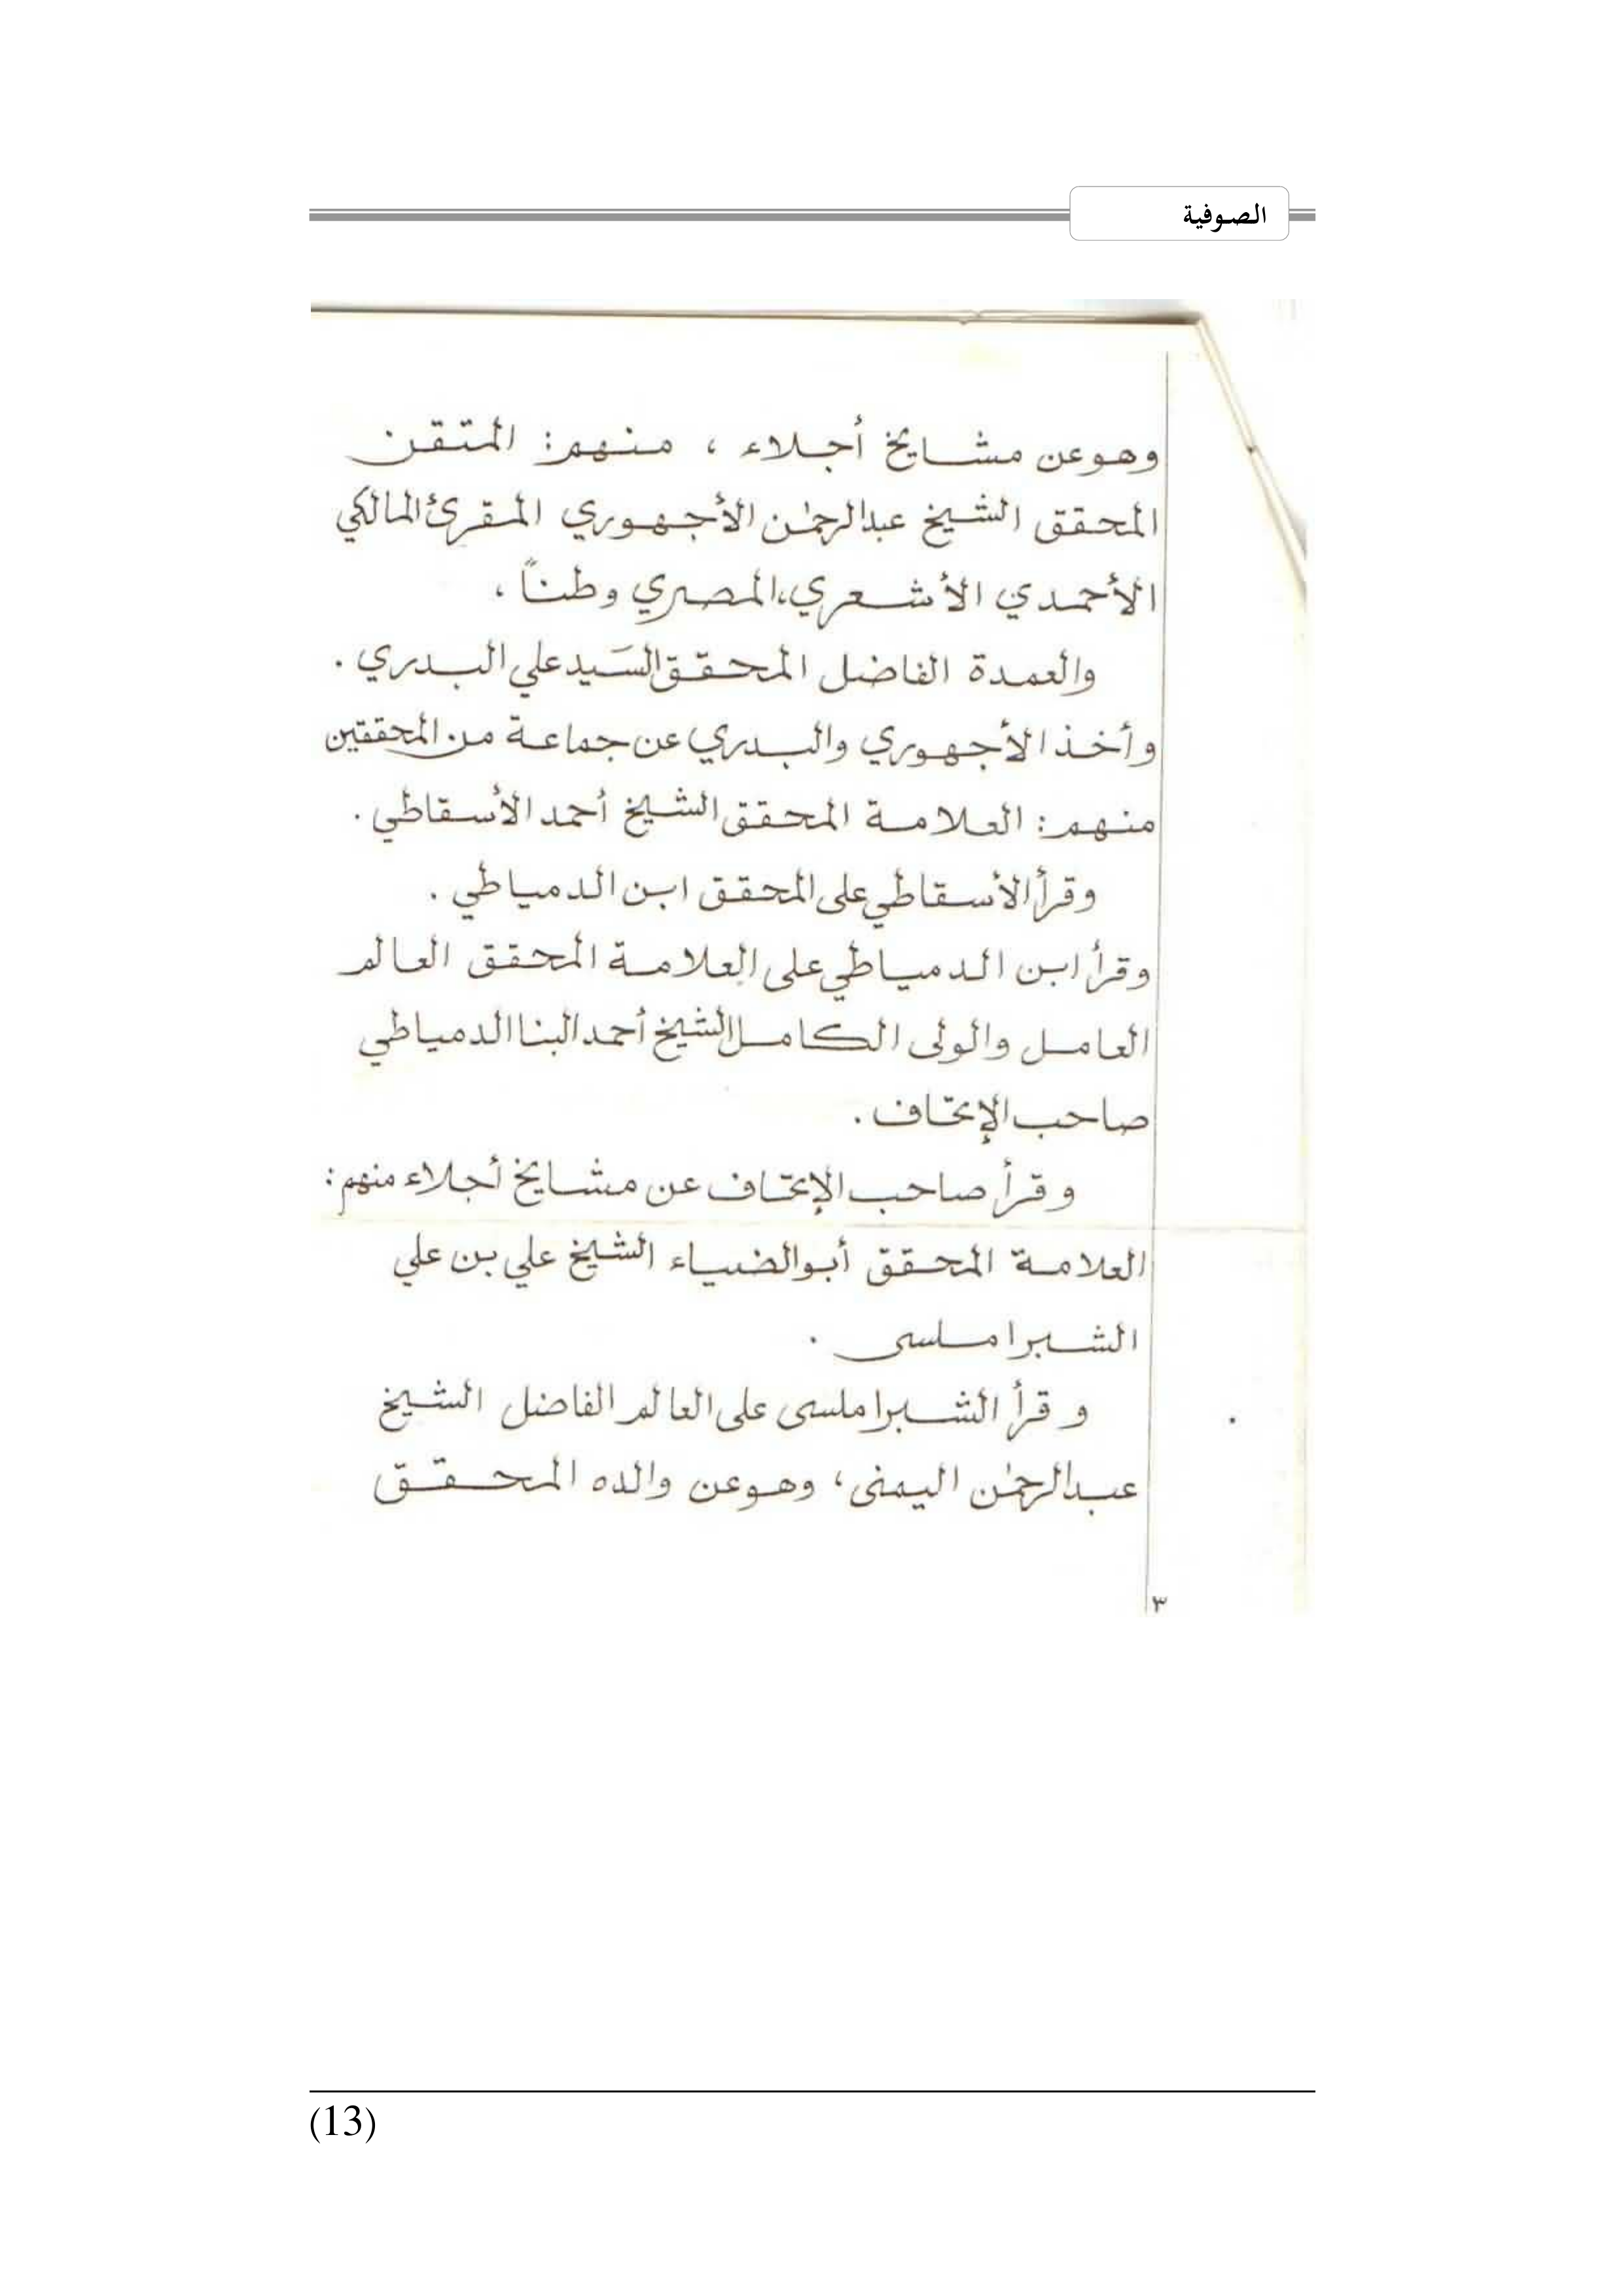 الصوفية
وهو عن مشايخ أجلاء ، منهم: المتقن
المحقق الشيخ عبدالرحمٰن الأجهوري المقرئ المالكي
الأحمدي الأشعري، المصري وطناً ،
والعمدة الفاضل المحقق السَيد علي البدري .
وأخذ الأجهوري والبدري عن جماعة من المحققين
منهم: العلامة المحقق الشيخ أحمد الأسقاطي .
وقرأ الأسقاطي على المحقق ابن الدمياطي .
وقرأ ابن الدمياطي على العلامة المحقق العالم
العامل والولى الكامل الشيخ أحمد البنا الدمياطي
صاحب الإتحاف .
وقرأ صاحب الإتحاف عن مشايخ أجلاء منهم:
العلامة المحقق أبو الضياء الشيخ علي بن علي
الشبراملسى .
وقرأ الشبراملسى على العالم الفاضل الشيخ
عبدالرحمٰن اليمنى، وهو عن والده المحقق
٣
(13)